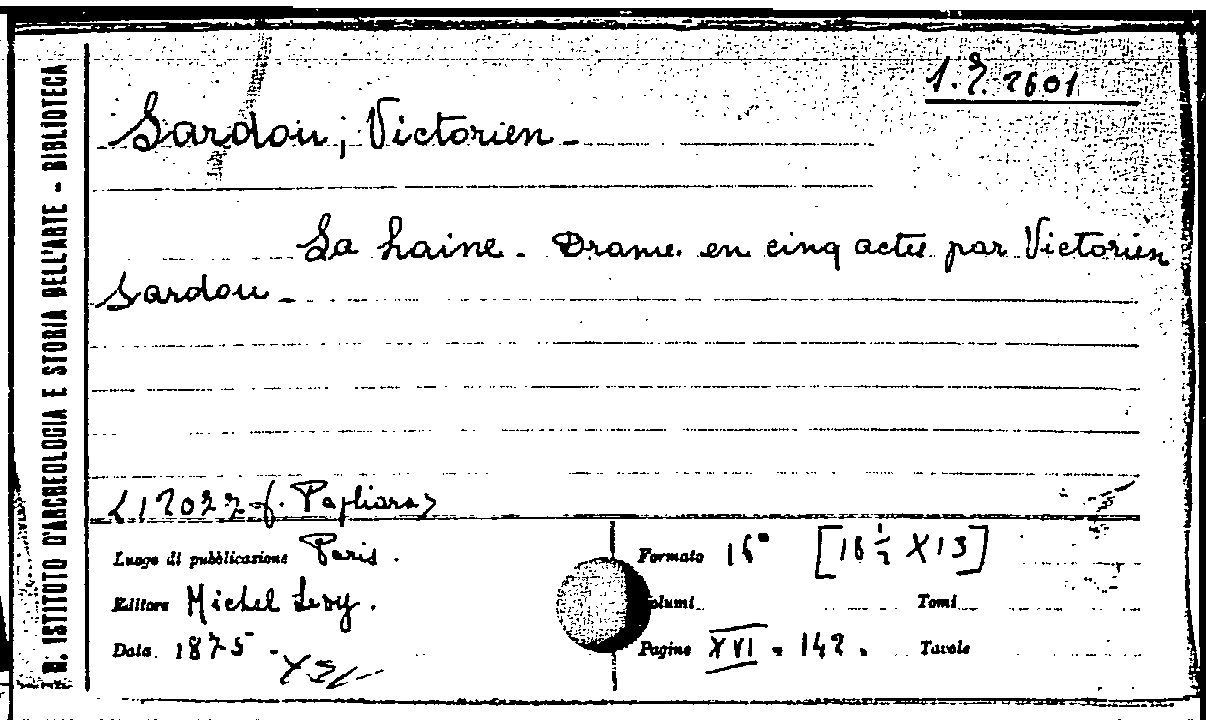 R. ISTITUTO D'ARCHEOLOGIA E STORIA DELL'ARTE - BIBLIOTECA
Sardou, Victorien -
La haine. Drame en cinq actes par Victorien
Sardou -
f. Pagliara>
Luogo di pubblicazione Paris.
Editore Michel Levy.
Data 1875 -
Formato 16° [18 ½ X 13]
Volumi Tomi
Pagine XVI - 142. Tavole